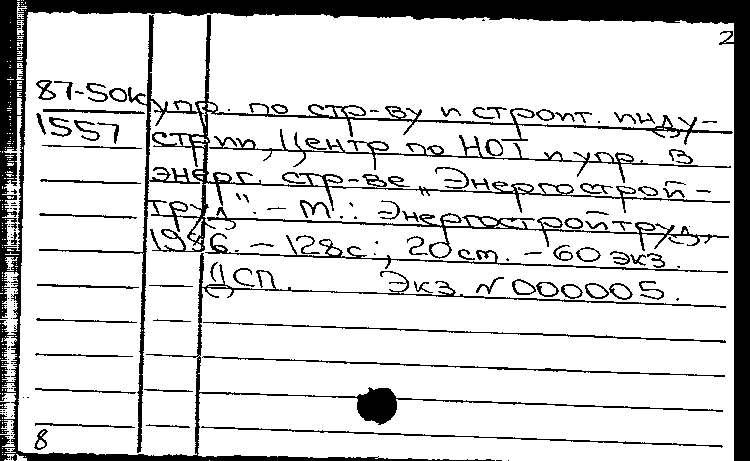 2
87-50к упр. по стр-ву и строит. инду-
1557 стрии, Центр по НОТ и упр. в
энерг. стр-ве „Энергострой-
труд". - М.: Энергостройтруд,
1986. - 128с.; 20см. - 60 экз.
ДСП. Экз. N 000005.
8